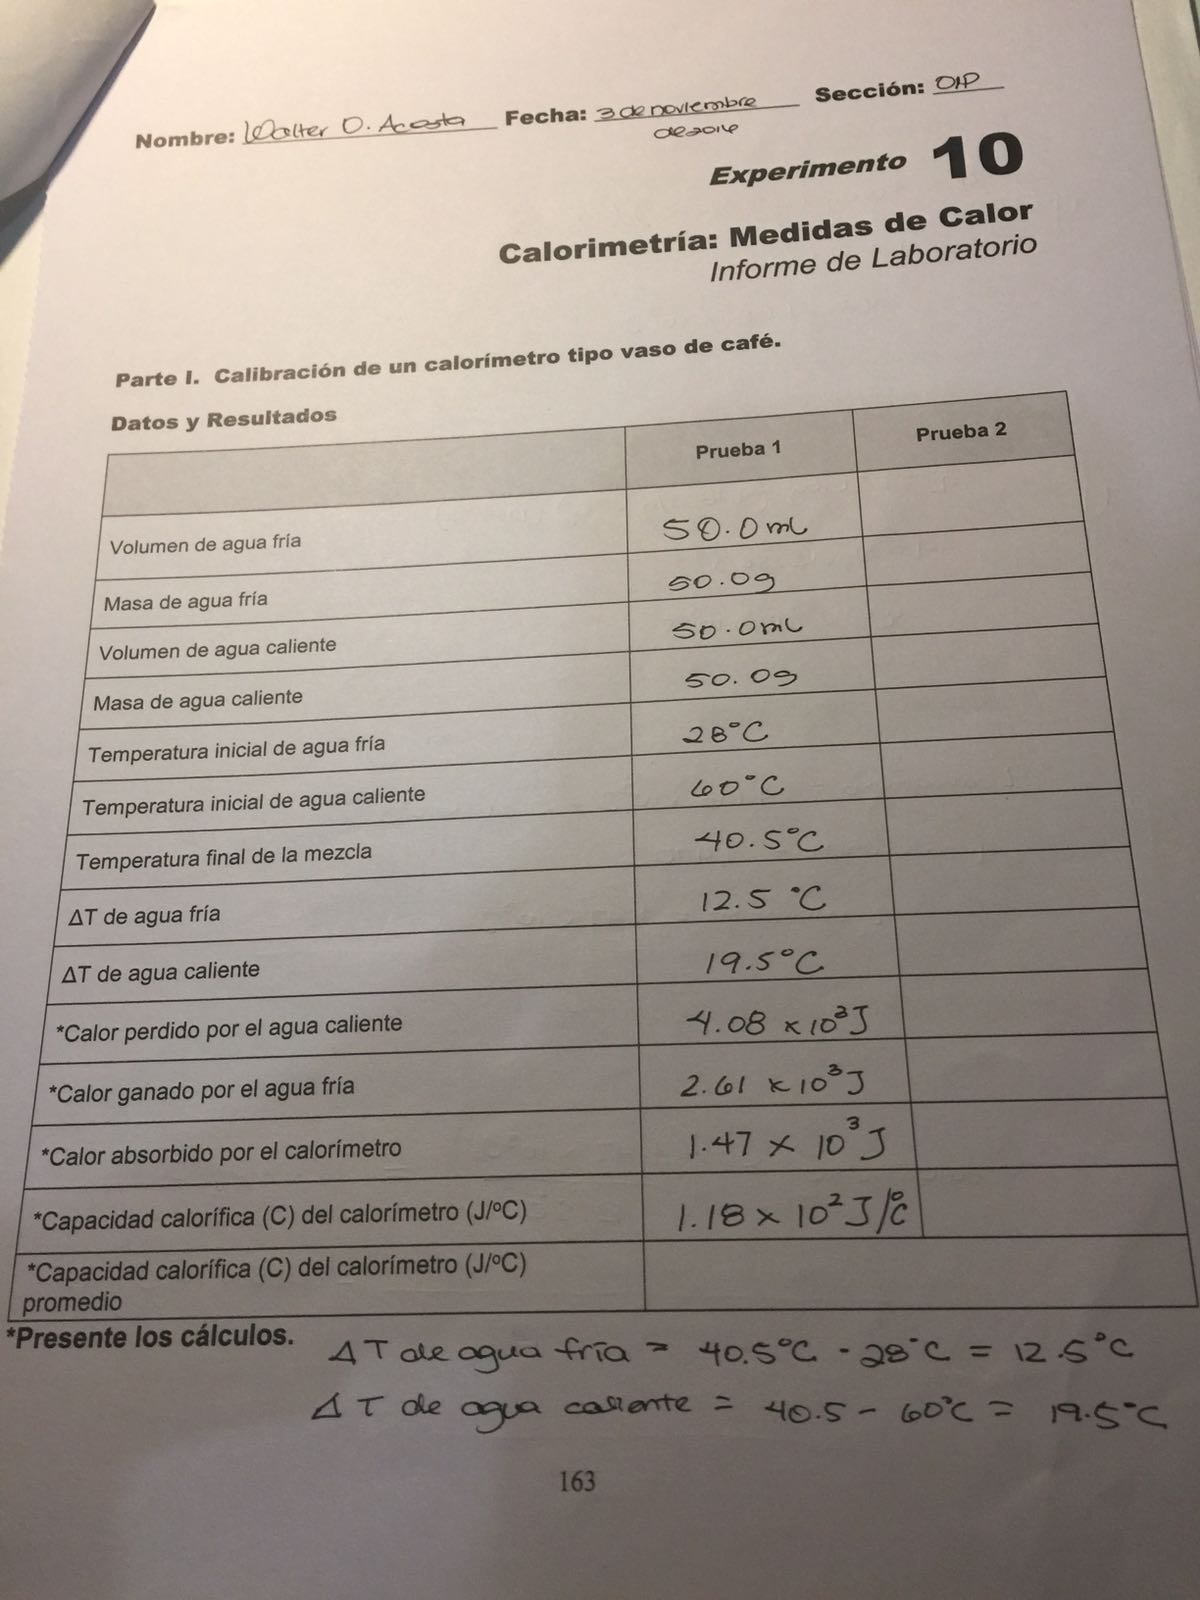 Nombre: Walter O. Acosta Fecha: 3 de noviembre Sección: 01P
de 2016
Experimento 10
Calorimetría: Medidas de Calor
Informe de Laboratorio
Parte I. Calibración de un calorímetro tipo vaso de café.
Datos y Resultados
Prueba 1 Prueba 2
Volumen de agua fría 50.0 mL
Masa de agua fría 50.0g
Volumen de agua caliente 50.0mL
Masa de agua caliente 50.0g
Temperatura inicial de agua fría 28°C
Temperatura inicial de agua caliente 60°C
Temperatura final de la mezcla 40.5°C
ΔT de agua fría 12.5 °C
ΔT de agua caliente 19.5°C
*Calor perdido por el agua caliente 4.08 x 10³J
*Calor ganado por el agua fría 2.61 x 10³J
*Calor absorbido por el calorímetro 1.47 x 10³J
*Capacidad calorífica (C) del calorímetro (J/ºC) 1.18 x 10² J/°C
*Capacidad calorífica (C) del calorímetro (J/ºC)
promedio
*Presente los cálculos.
ΔT de agua fría = 40.5°C - 28°C = 12.5°C
ΔT de agua caliente = 40.5 - 60°C = 19.5°C
163